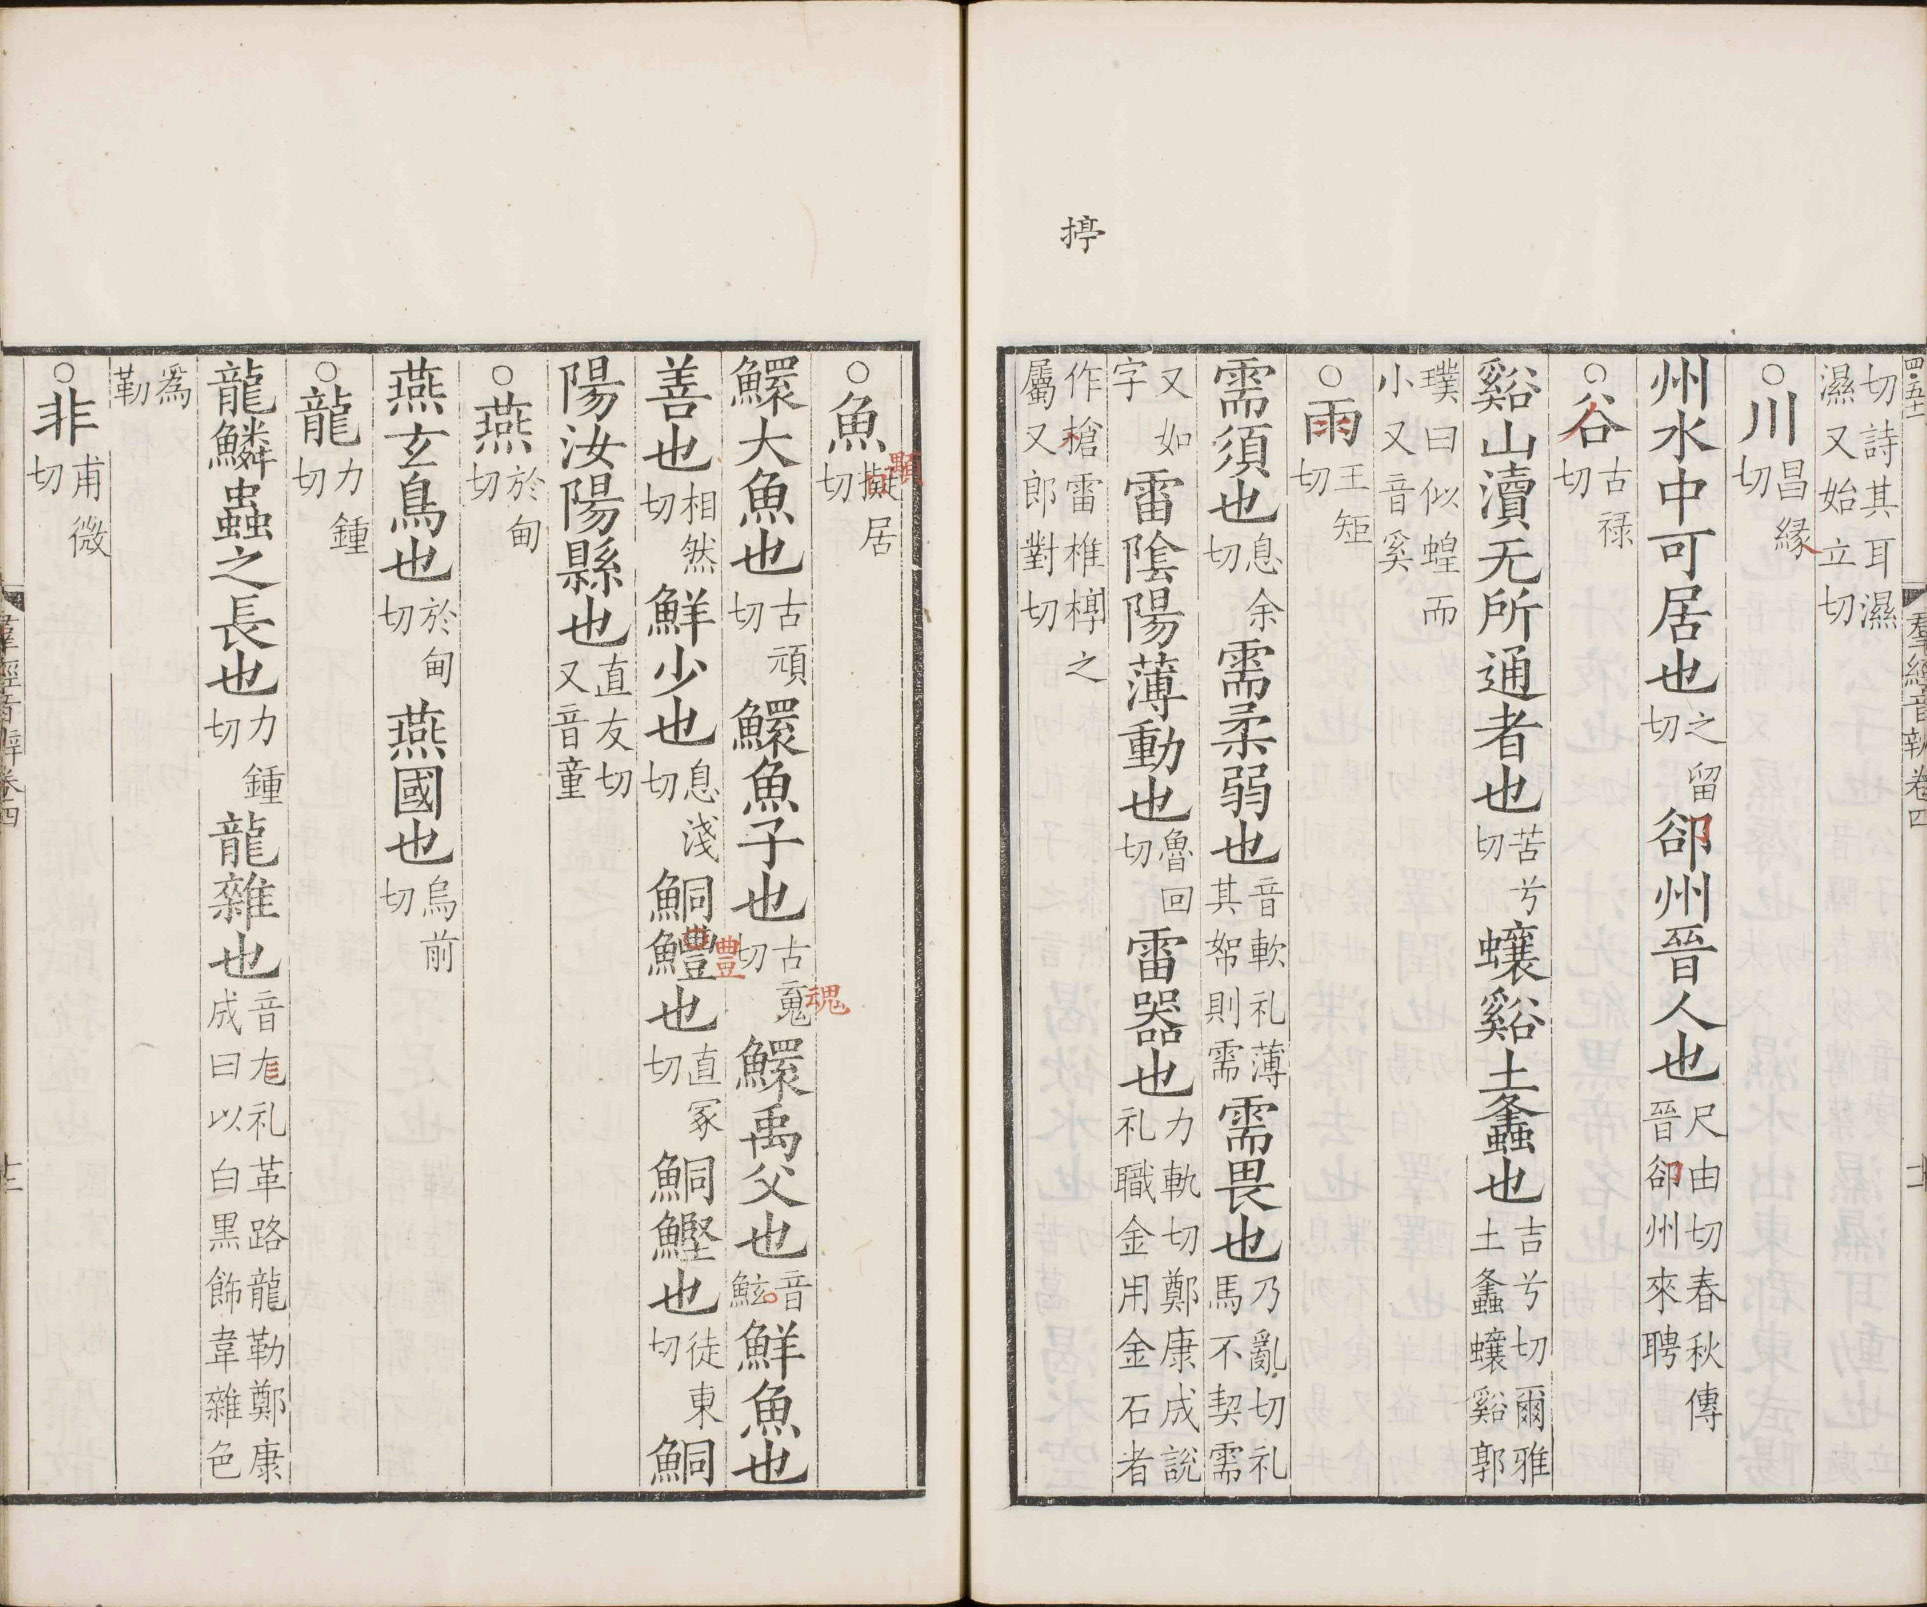 切詩其耳濕濕又始立切
○川昌緣切
州水中可居也之留切郤州晉人也尺由切春秋傳晉郤州來聘
○谷古祿切
谿山瀆无所通者也苦兮切蠰谿土螽也吉兮切爾雅土螽蠰谿郭
璞曰似蝗而小又音奚
○雨王矩切
需須也息余切需柔弱也音軟礼薄其帤則需需畏也乃亂切礼馬不契需
又如字雷陰陽薄動也魯回切雷器也力軌切鄭康成說礼職金用金石者
作槍雷椎椁之屬又郎對切
搒
○魚擬居切
顒
鰥大魚也古頑切鰥魚子也古䰟切鰥禹父也音鮌鮮魚也
魂
善也相然切鮮少也息淺切鮦鱧也直冢切鮦鰹也徒東切鮦
豊
陽汝陽縣也直友切又音童
○燕於甸切
燕玄鳥也於甸切燕國也烏前切
○龍力鍾切
龍鱗蟲之長也力鍾切龍雜也音尨礼革路龍勒鄭康成曰以白黑飾韋雜色
為勒
○非甫微切
羣經音辨卷四
十二